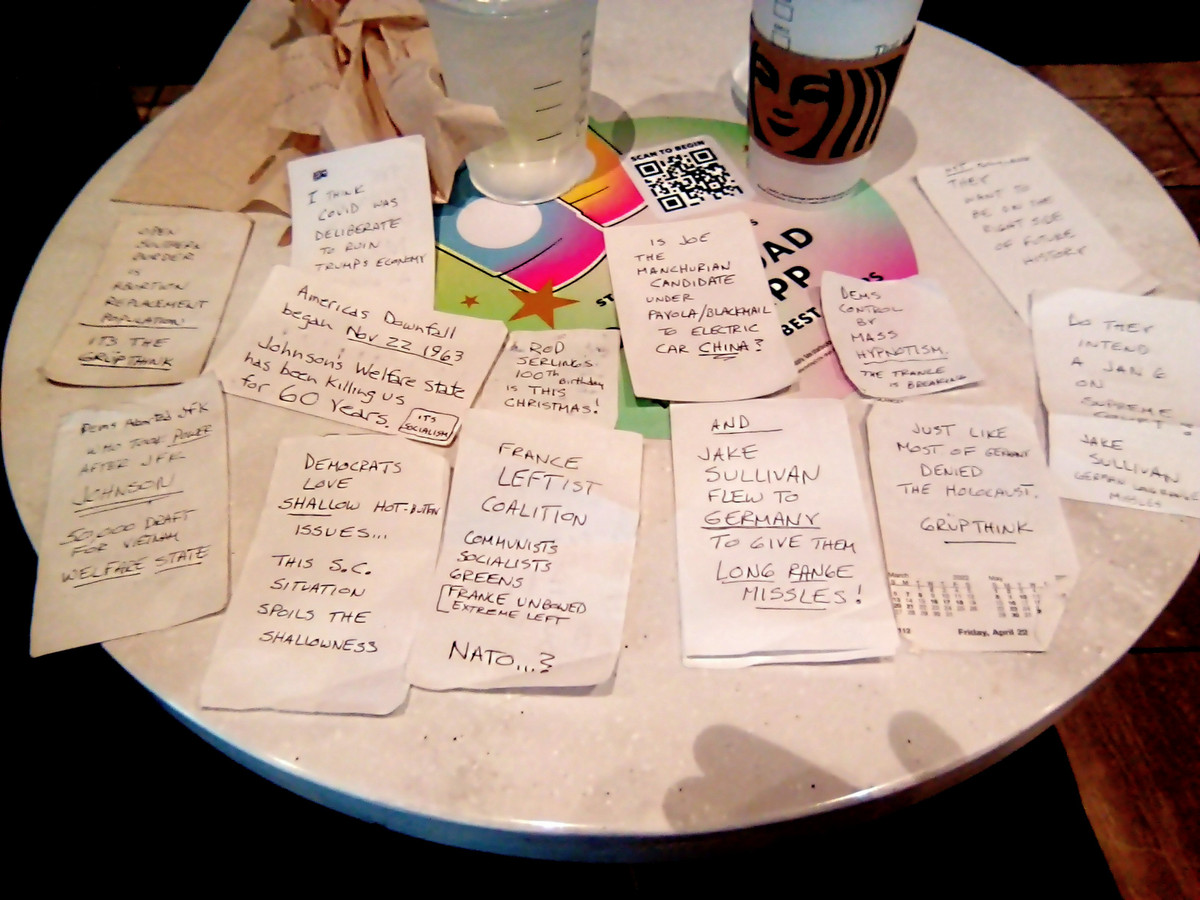 I THINK
COVID WAS
DELIBERATE
TO RUIN
TRUMPS ECONOMY
SCAN TO BEGIN
OAD
PP
BEST
OPEN
SOUTHERN
BORDER
IS
ABORTION
REPLACEMENT
POPULATION
ITS THE
GRÜPTHINK
Americas Downfall
began Nov 22 1963
Johnson's Welfare State
has been killing us
for 60 Years.
ITS
SOCIALISM
ROD
SERLING'S
100th Birthday
IS THIS
CHRISTMAS!
IS JOE
THE
MANCHURIAN
CANDIDATE
UNDER
PAYOLA/BLACKMAIL
TO ELECTRIC
CAR CHINA?
DEMS
CONTROL
BY
MASS
HYPNOTISM.
THE TRANCE IS BREAKING
THEY
WANT TO
BE ON THE
RIGHT SIDE
OF FUTURE
HISTORY
DO THEY
INTEND
A JAN 6
ON
SUPREME
COURT?
JAKE
SULLIVAN
GERMAN LONG RANGE
MISSLES
DEMS JFK
WHO TOOK POWER
AFTER JFK
JOHNSON
50,000 DRAFT
FOR VIETNAM
WELFARE STATE
DEMOCRATS
LOVE
SHALLOW HOT-BUTTON
ISSUES...
THIS S.C.
SITUATION
SPOILS THE
SHALLOWNESS
FRANCE
LEFTIST
COALITION
COMMUNISTS
SOCIALISTS
GREENS
FRANCE UNBOWED
EXTREME LEFT
NATO...?
AND
JAKE
SULLIVAN
FLEW TO
GERMANY
TO GIVE THEM
LONG RANGE
MISSLES!
JUST LIKE
MOST OF GERMANY
DENIED
THE HOLOCAUST.
GRÜPTHINK
March 2022 May
112 Friday, April 22